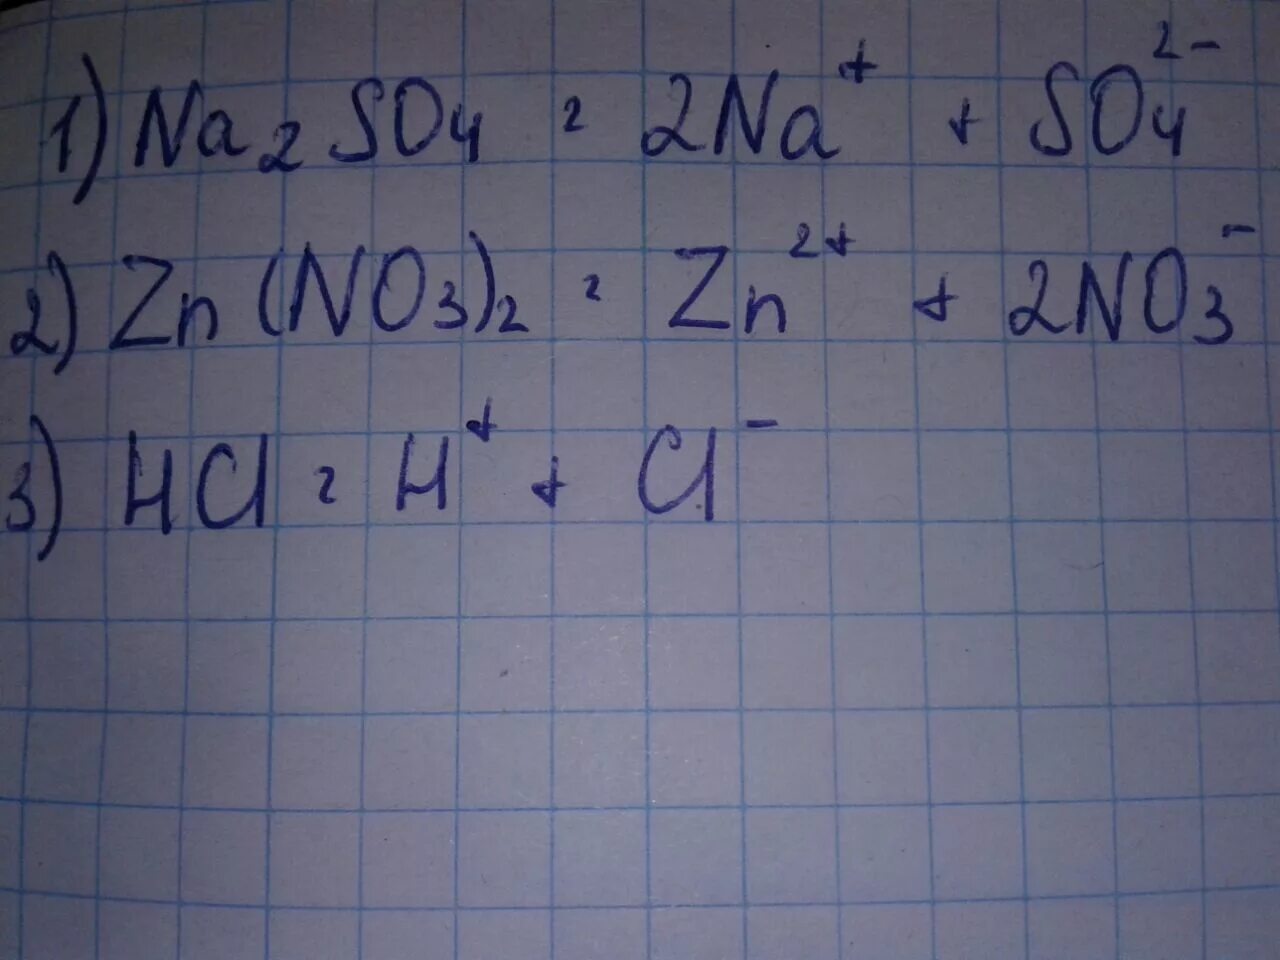 1) Na₂SO₄ = 2Na⁺ + SO₄²⁻
2) Zn(NO₃)₂ = Zn²⁺ + 2NO₃⁻
3) HCl = H⁺ + Cl⁻